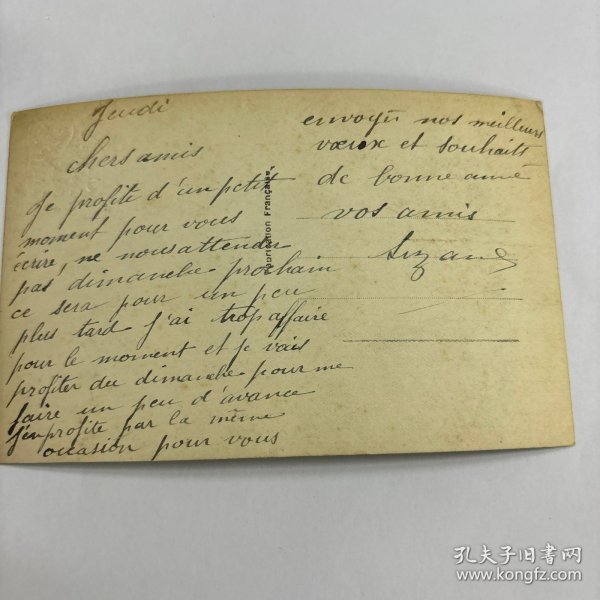 Jeudi
chers amis
Je profite d'un petit
moment pour vous
écrire, ne nous attendu
pas dimanche prochain
ce sera pour un peu
plus tard j'ai trop affaire
pour le moment et je vais
profiter du dimanche pour me
faire un peu d'avance
j'en profite par la même
occasion pour vous
envoyés nos meilleurs
vœux et souhaits
de bonne anné
vos amis
Suzane
Fabrication Française
孔夫子旧书网
www.kongfz.com